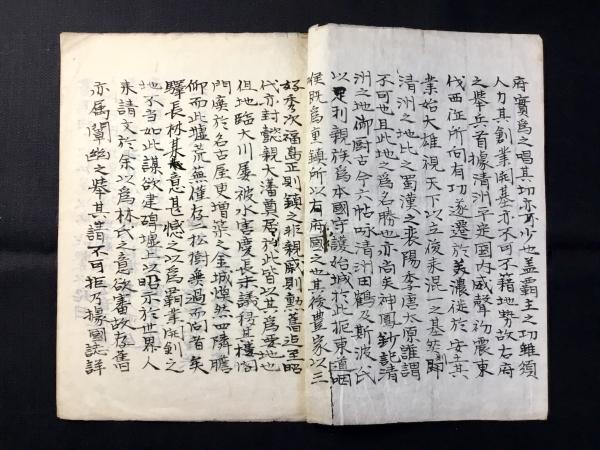 府實為之唱其切亦不少也蓋霸主之功雖須
人力其創業開基亦不可不籍地勢故右府
之舉兵首據清洲平英國内威聲初震東
伐西征所向有功遂遷於美濃徙於安土其
業始大雄視天下以立後來混一之基然則
清洲之地比之蜀漢之襄陽李唐大原誰謂
不可也且此地之為名勝也亦尚矣神鳳鈔記清
洲之地御厨古今六帖咏清洲田鶴及斯波氏
以足利親族為本國守護始城於此扼東道咽
喉既為重鎮所以有府國之也其後豊家以三
好秀次福島正則鎮之非親戚則勳舊迨至昭
代亦封懿親大藩奠居於此皆以其為要地也
但地臨大川屡被水害慶長末議移其樓閣
門廡於名古屋更増築之金城燦然四隣瞻
仰而此墟荒無僅存一松樹無過而問者矣
驛長林基意甚憾之以為霸業開創之
地不当如此謀欲建碑墟上以昭示於世界人
来請文於余以為林氏之意欲審故存舊
亦属闡幽之舉其請不可拒乃據國誌詳